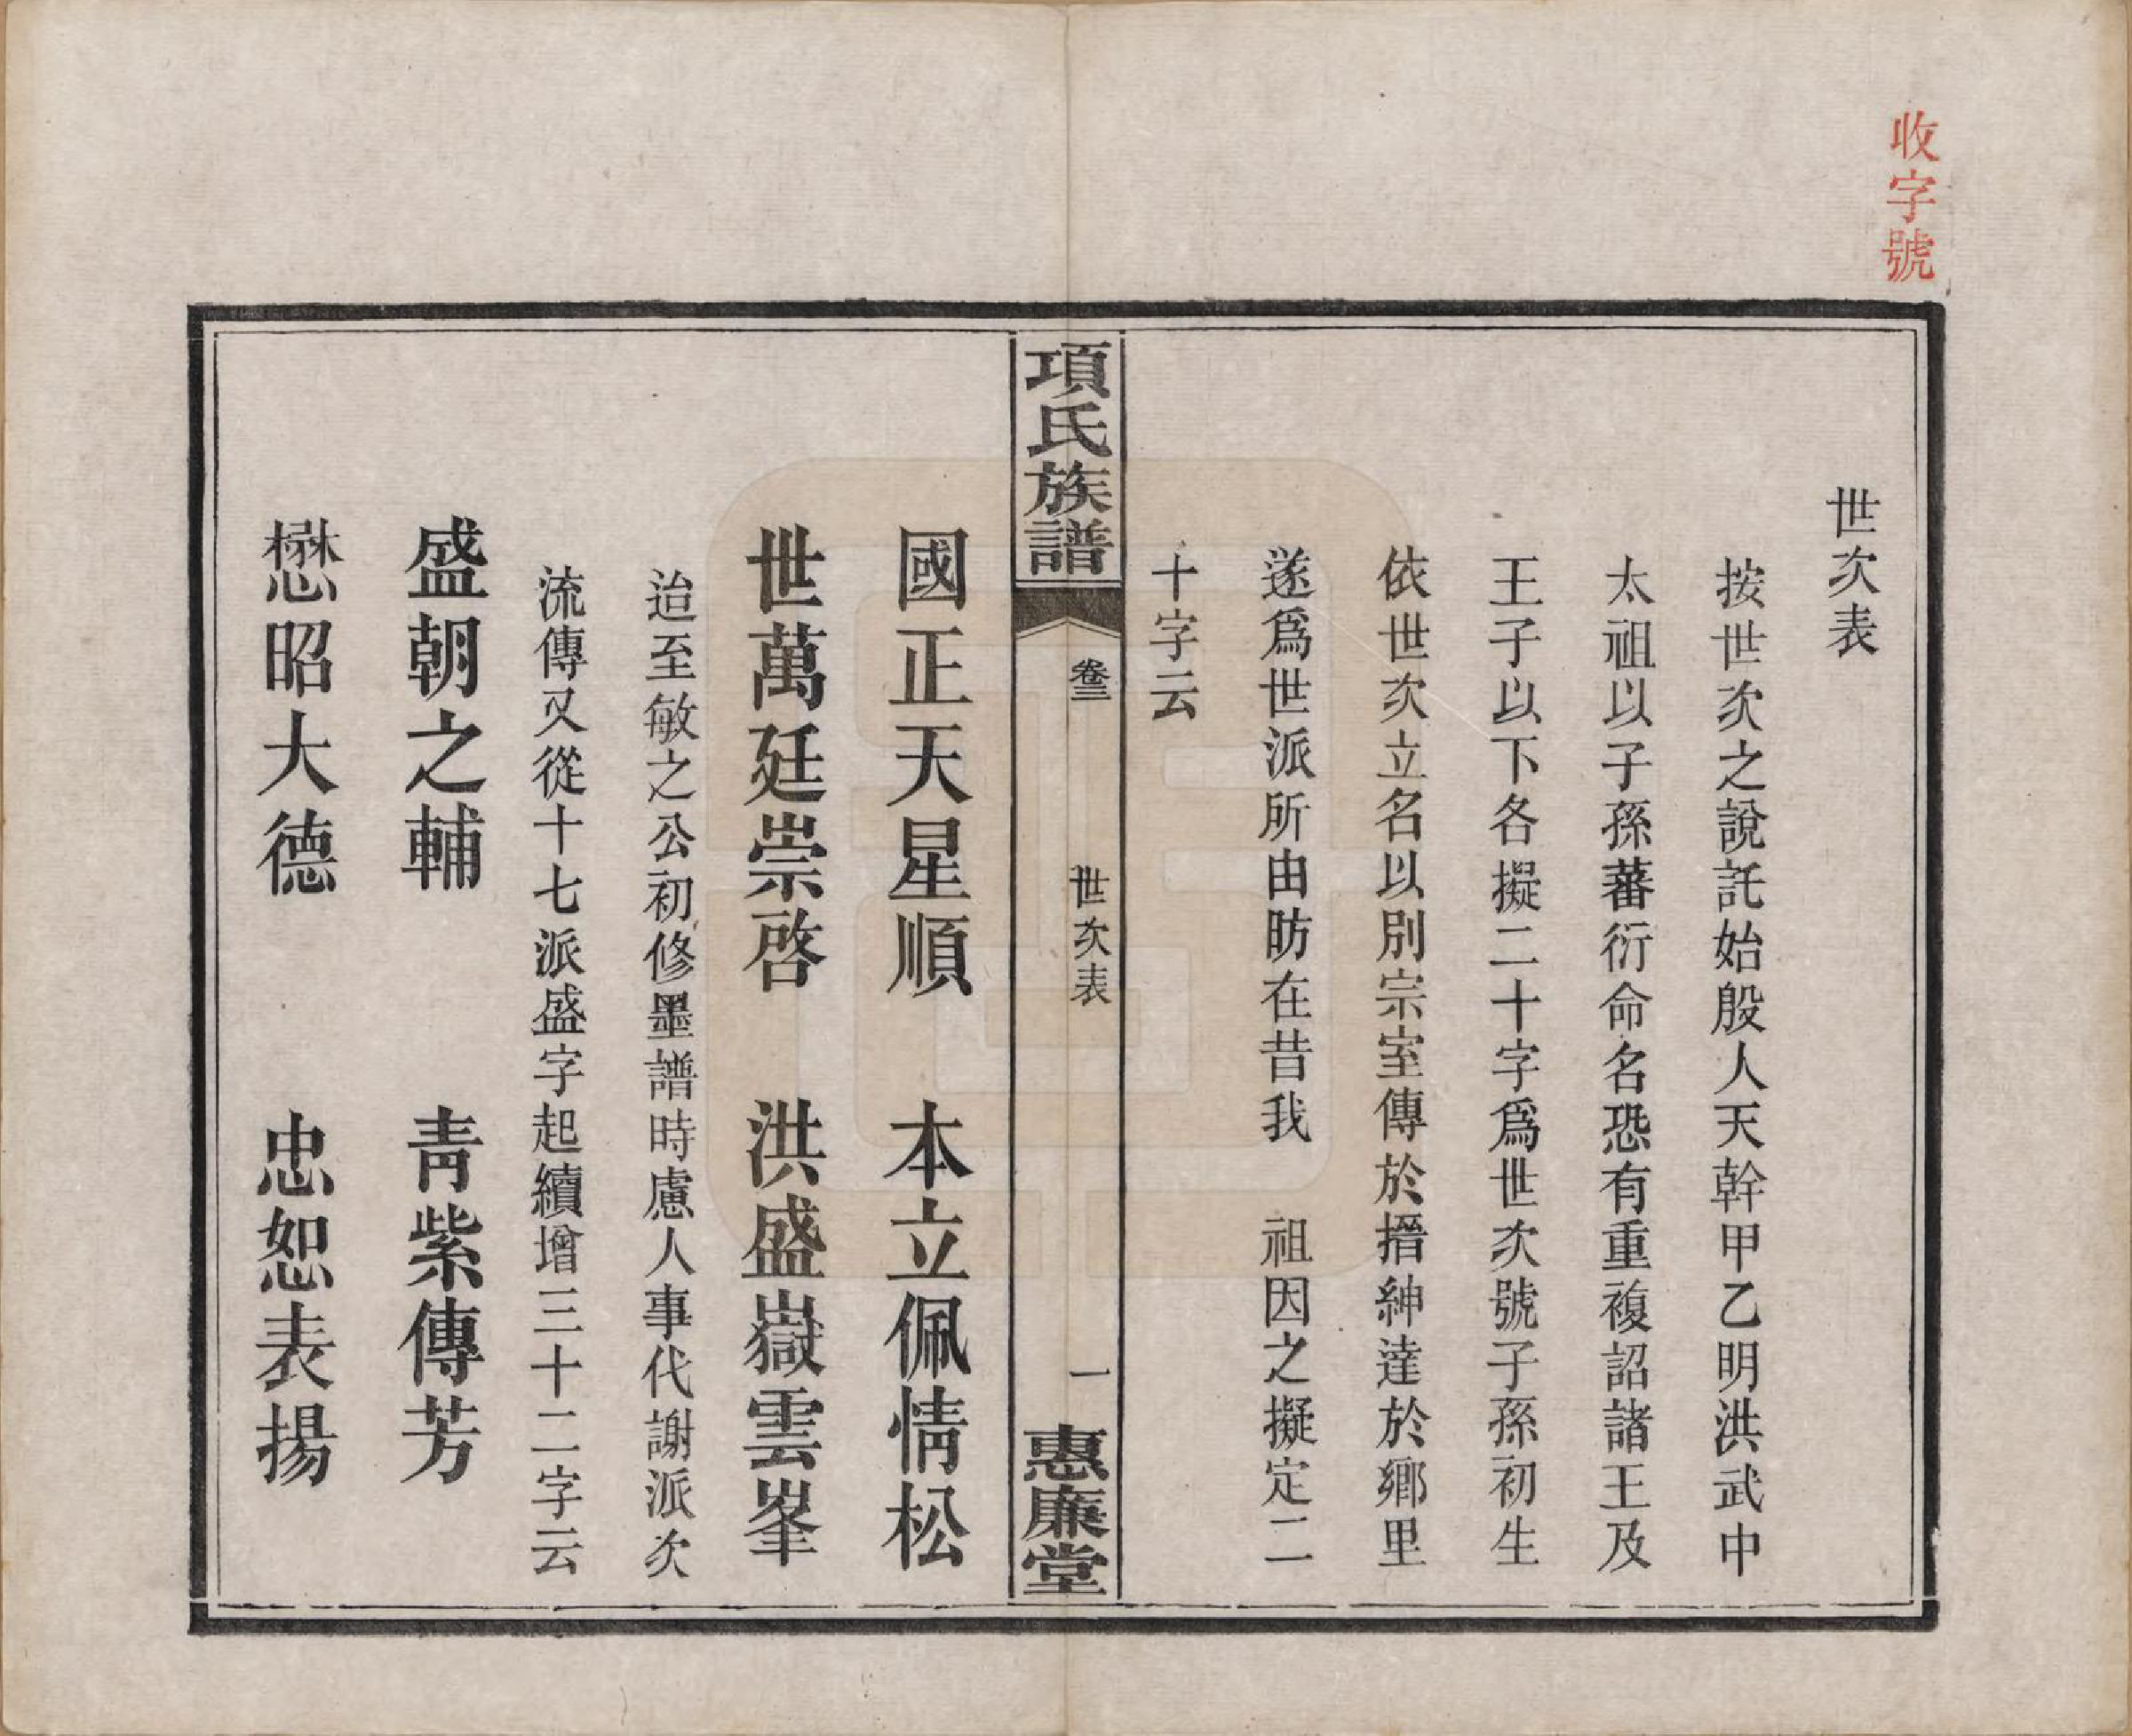 收字號
世次表
按世次之說託始殷人天幹甲乙明洪武中
太祖以子孫蕃衍命名恐有重複詔諸王及
王子以下各擬二十字爲世次號子孫初生
依世次立名以別宗室傳於搢紳達於鄉里
遂爲世派所由昉在昔我 祖因之擬定二
十字云
項氏族譜 卷三 世次表 一 惠廉堂
國正天星順 本立佩情松
世萬廷崇啓 洪盛嶽雲峯
迨至敏之公初修墨譜時慮人事代謝派次
流傳又從十七派盛字起續增三十二字云
盛朝之輔 青紫傳芳
懋昭大德 忠恕表揚